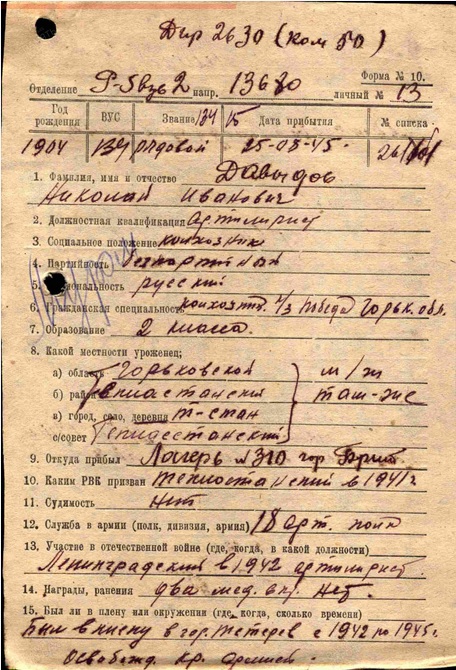 Дир 2630 (Ком 50)
Форма № 10.
Отделение напр. 13630 личный № 13
Год рождения ВУС Звание Дата прибытия № списка
1904 134 рядовой 25-08-45.
1. Фамилия, имя и отчество Давыдов
Николай Иванович
2. Должностная квалификация артилирист
3. Социальное положение колхозник
4. Партийность безпартийная
5. Национальность русский
6. Гражданская специальность к/з Победа Горьк. обл.
7. Образование 2 класса.
8. Какой местности уроженец;
а) область Горьковской м/ж
б) район там-же
в) город, село, деревня Т-стан
с/совет
9. Откуда прибыл Лагерь № 310 гор
10. Каким РВК призван в 1941 г
11. Судимость нет
12. Служба в армии (полк, дивизия, армия) 18 арт. полк
13. Участие в отечественной войне (где, когда, в какой должности)
Ленинградский в 1942 артилирист.
14. Награды, ранения два нет.
15. Был ли в плену или окружении (где, когда, сколько времени)
Был в плену в гор. с 1942 по 1945 г.
Освобожд. Кр. армией.